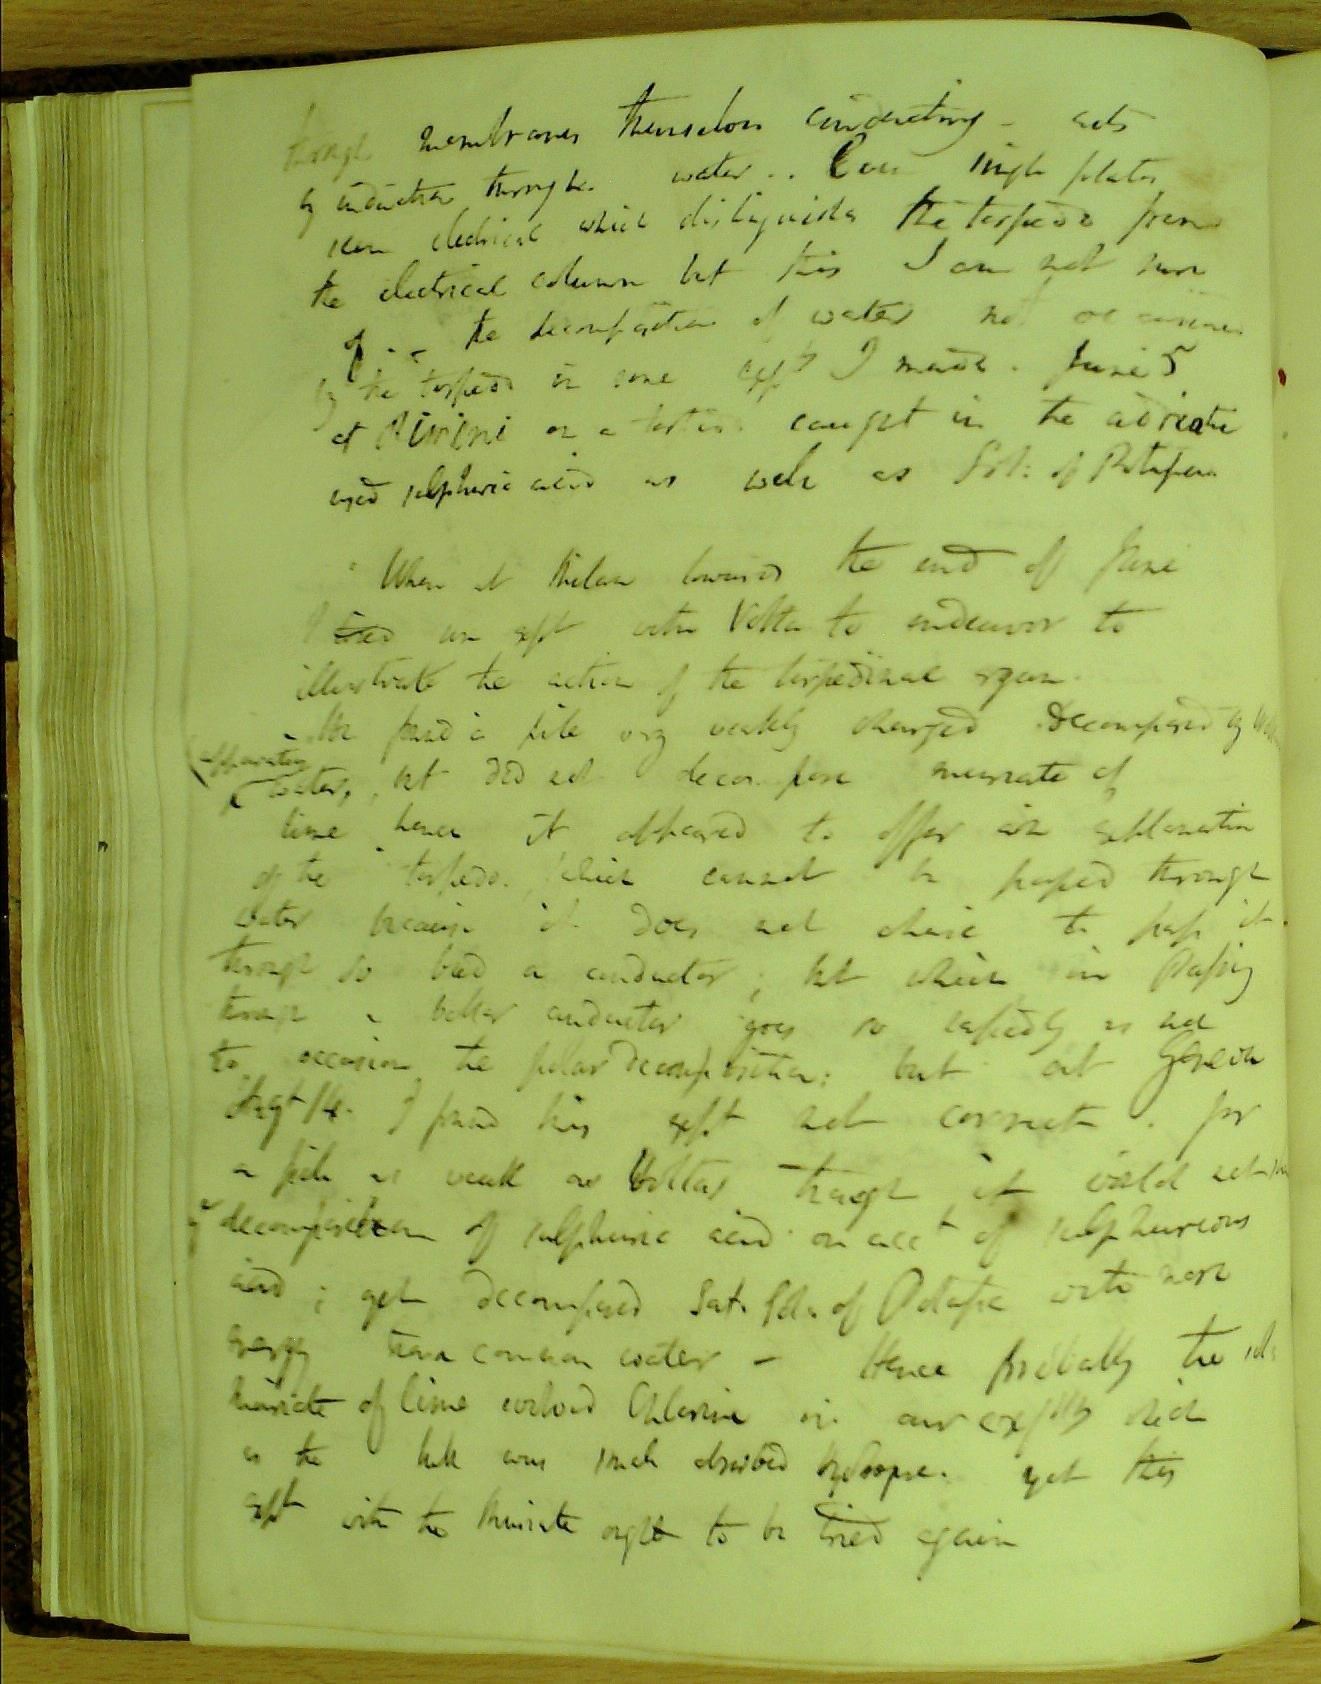 though membranes themselves conducting - acts
by induction through water .. Even single plates
seem electrical which distinguishes the torpedo from
the electrical column but this I am not sure
of . - the decomposition of water not
by the torpedo in some expts I made . June 5
at Rimini on a caught in the adriatic
used sulphuric acid as well as Sol: of Potassa
When at Milan towards the end of June
I tried an expt with Volta to endeavor to
illustrate the action of the torpedinal organ.
We found a pile very weakly charged decomposed by
(apparently
water, but did not decompose muriate of
lime hence it appeared to offer an explanation
of the torpedo. which cannot be passed through
water because it does not chuse to pass it
through so bad a conductor; but which in passing
through a better conductor goes so rapidly as not
to occasion the polar decomposition: but at Geneva
14. I found this expt not correct . for
a pile as weak as Voltas though it would not
decomposition of sulphuric acid on acct of sulphureous
acid ; yet decomposed Sat. Sol: of Potassa with more
energy than common water - Hence probably the
muriate of lime evolved Chlorine in our expts which
as the was much absorbed yet this
expt with the Muriate ought to be tried again